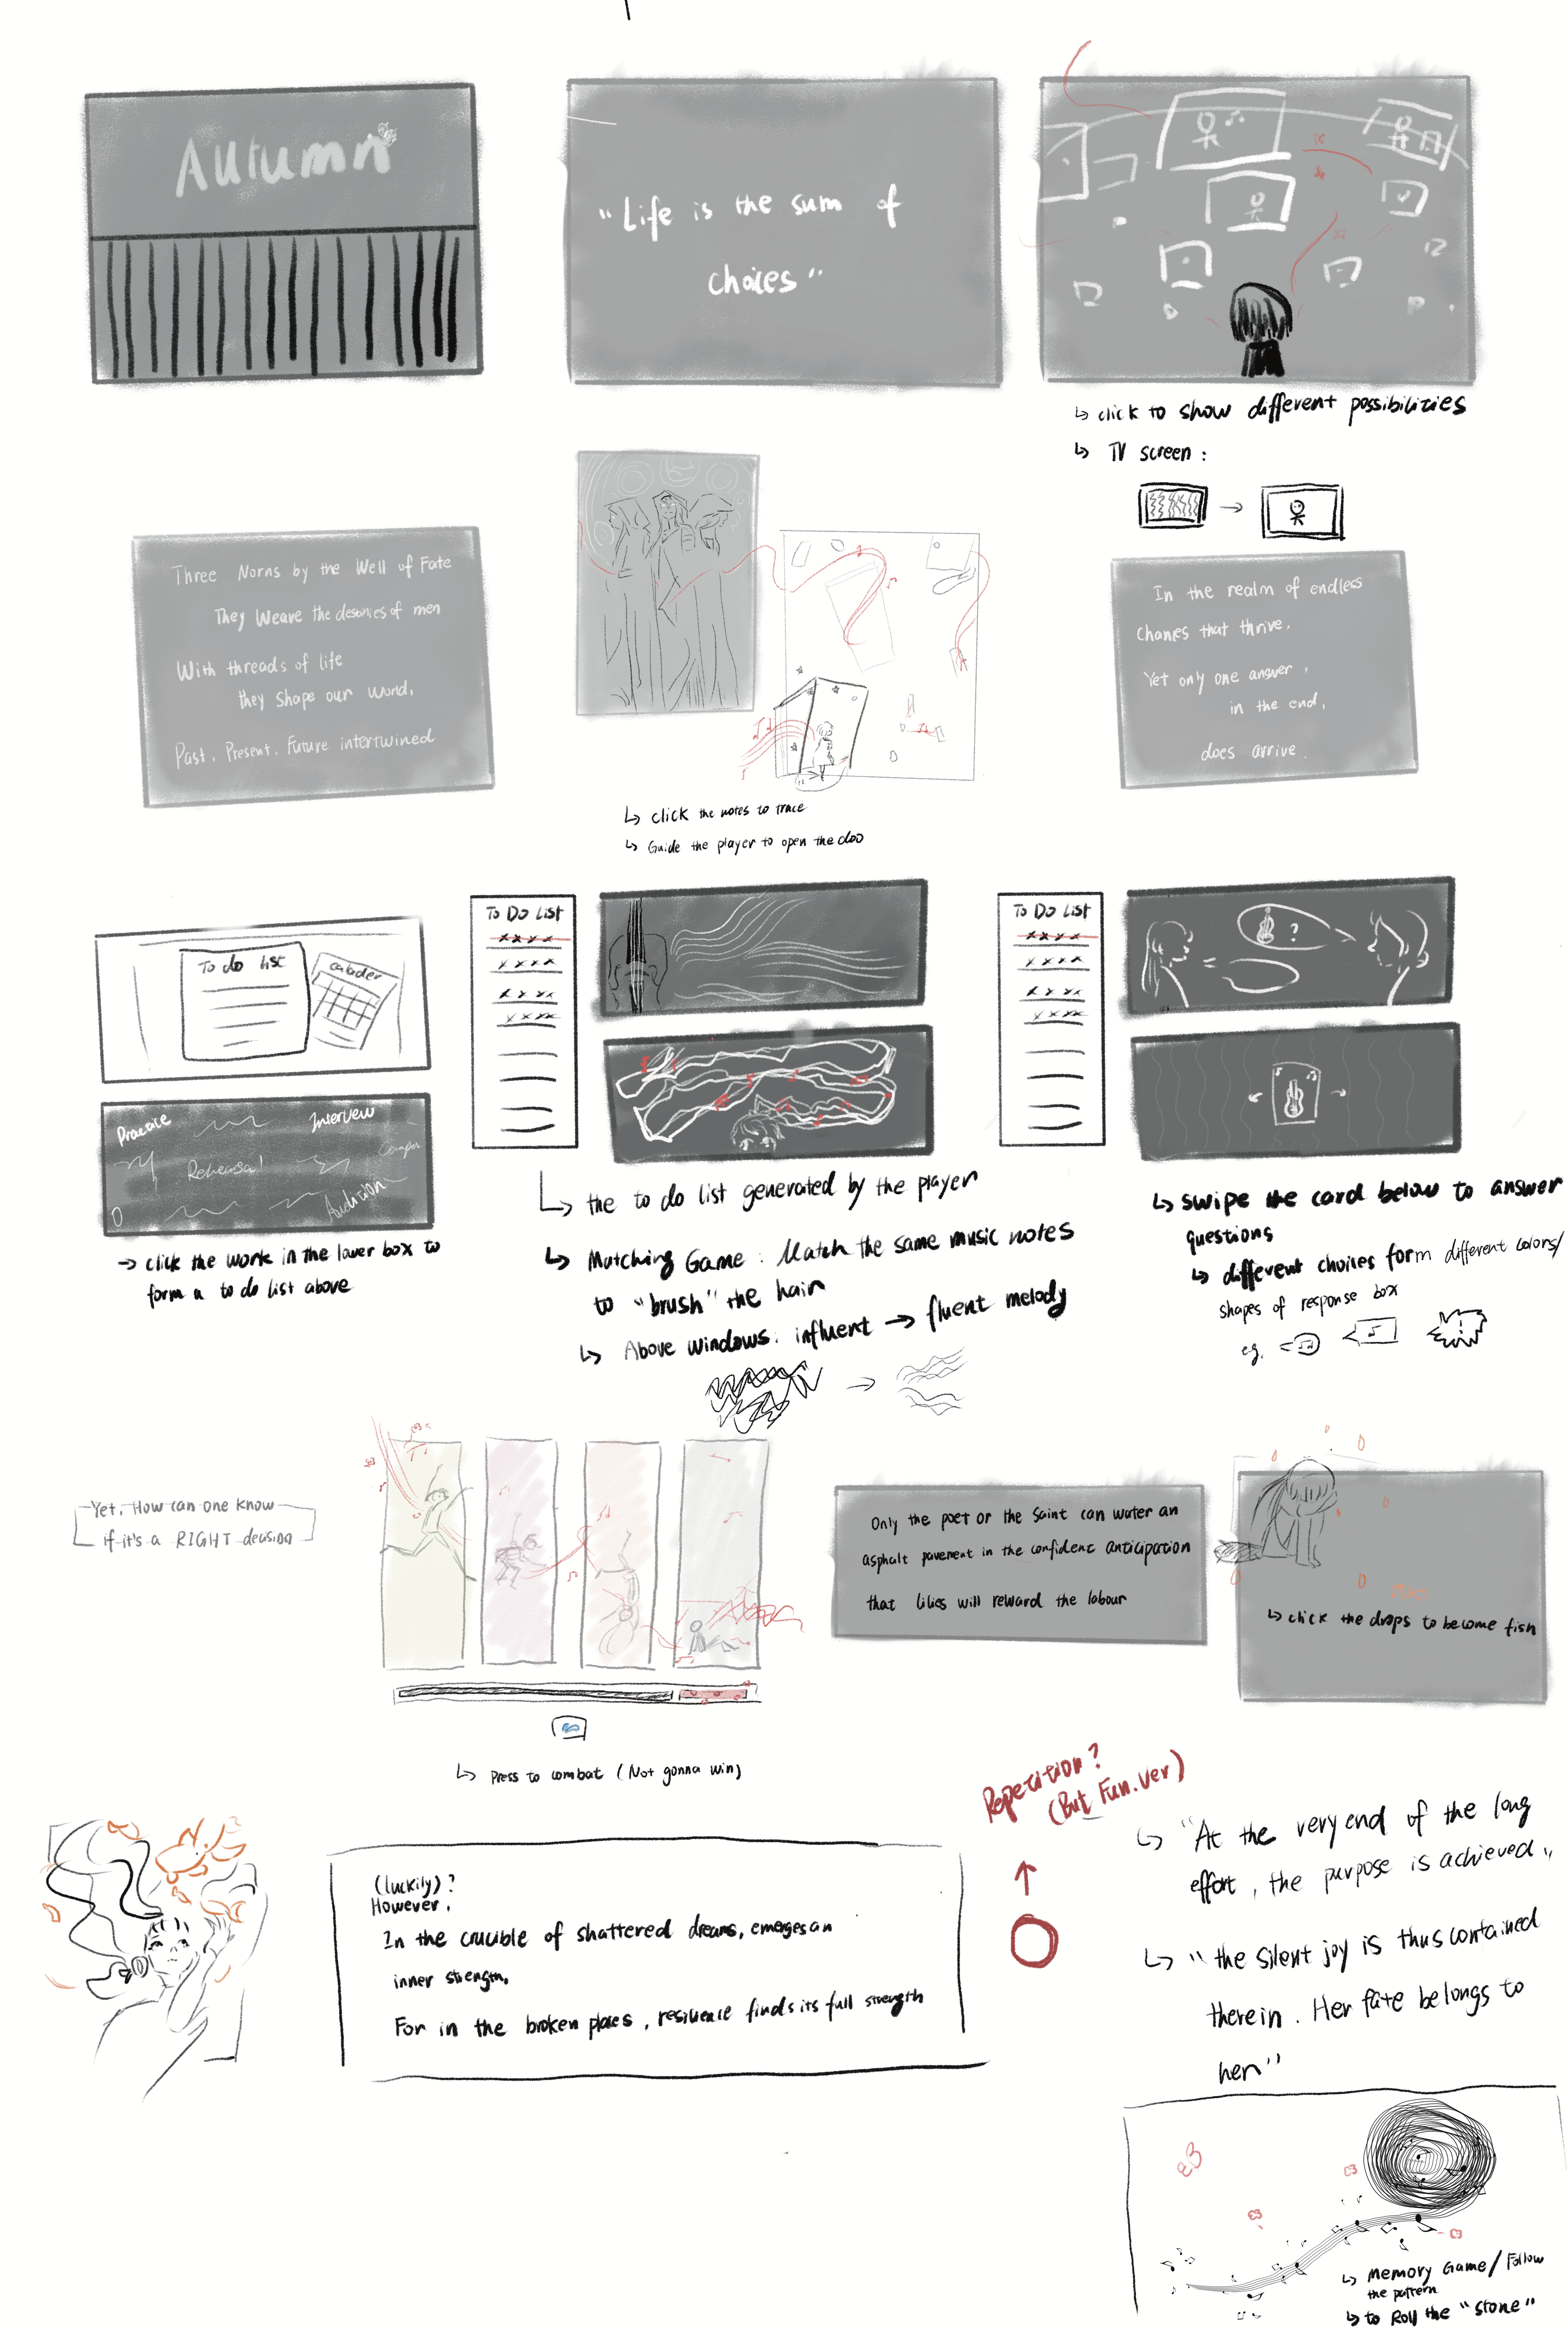 Autumn
"Life is the sum of
choices"
↳ click to show different possibilities
↳ TV screen :
Three Norns by the Well of Fate
They Weave the desanies of men
With threads of life
they shape our world,
Past, Present, Future intertwined
↳ click the notes to trace
↳ Guide the player to open the doo
In the realm of endless
chances that thrive,
Yet only one answer,
in the end,
does arrive.
To do list
calader
Practice
Interview
Rehearsal
Audition
→ click the work in the lower box to
form a to do list above
To Do List
xxxx
xxxx
xxxx
xxxx
↳ the to do list generated by the player
↳ Matching Game : Match the same music notes
to "brush" the hair
↳ Above windows: influent → fluent melody
To Do List
xxxx
xxxx
xxxx
xxxx
?
↳ swipe the card below to answer
questions
↳ different choices form different colors/
shapes of response box
eg.
Yet, How can one know
if it's a RIGHT decision
↳ Press to combat (Not gonna win)
Only the poet or the Saint can water an
asphalt pavement in the confident anticipation
that lilies will reward the labour
↳ click the drops to become fish
(luckily) ?
However,
In the crucible of shattered dreams, emerges an
inner strength,
For in the broken places, resilience finds its full strength
Repetition?
(But Fun.ver)
↳ "At the very end of the long
effort, the purpose is achieved,"
↳ "the silent joy is thus contained
therein. Her fate belongs to
her"
↳ Memory Game/Follow
the pattern
↳ to Roll the "stone"